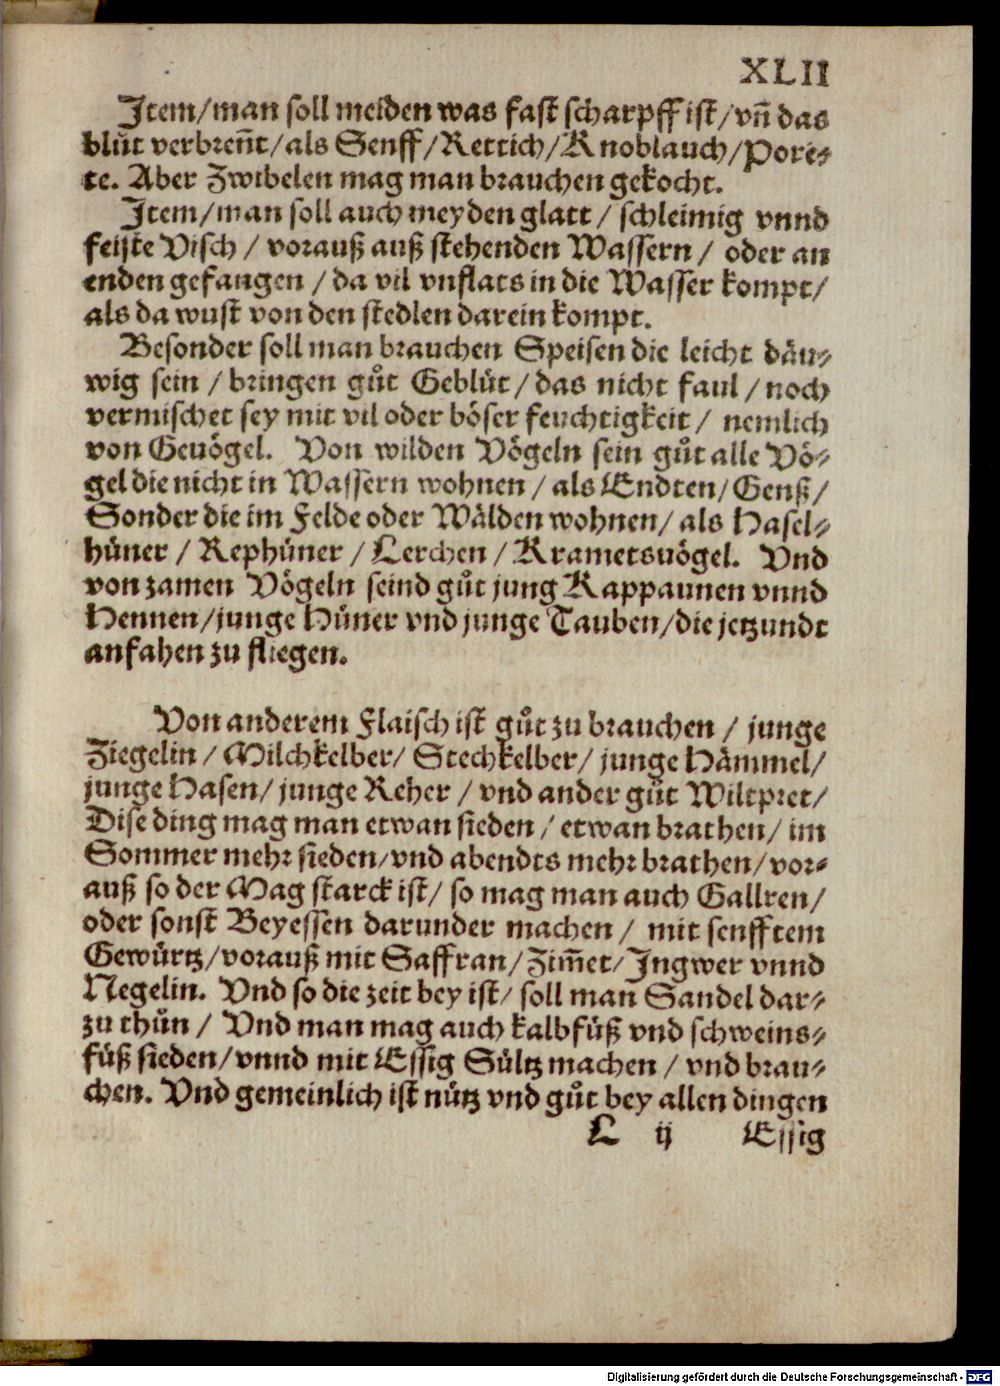 XLII
Item/man soll meiden was fast scharpff ist/vñ das
blůt verbreñt/als Senff/Rettich/Knoblauch/Pore-
te. Aber Zwibelen mag man brauchen gekocht.
Item/man soll auch meyden glatt/ schleimig vnnd
feiste Visch / vorauß auß stehenden Wassern / oder an
enden gefangen / da vil vnflats in die Wasser kompt/
als da wust von den stedlen darein kompt.
Besonder soll man brauchen Speisen die leicht däu-
wig sein / bringen gůt Geblůt / das nicht faul / noch
vermischet sey mit vil oder böser feuchtigkeit / nemlich
von Geuögel. Von wilden Vögeln sein gůt alle Vö-
gel die nicht in Wassern wohnen / als Endten/Genß/
Sonder die im Felde oder Wälden wohnen/ als Hasel-
hüner / Rephüner / Lerchen / Krametsuögel. Vnd
von zamen Vögeln seind gůt jung Kappaunen vnnd
Hennen/junge Hüner vnd junge Tauben/die jetzundt
anfahen zu fliegen.
Von anderem Flaisch ist gůt zu brauchen / junge
Ziegelin / Milchkelber/ Stechkelber/ junge Hämmel/
junge Hasen/ junge Reher / vnd ander gůt Wiltpret/
Dise ding mag man etwan sieden / etwan brathen/ im
Sommer mehr sieden/vnd abendts mehr brathen/vor-
auß so der Mag starck ist/ so mag man auch Gallren/
oder sonst Beyessen darunder machen / mit senfftem
Gewürtz/vorauß mit Saffran/Zim̃et/Ingwer vnnd
Negelin. Vnd so die zeit bey ist/ soll man Sandel dar-
zu thůn / Vnd man mag auch kalbfüß vnd schweins-
füß sieden/vnnd mit Essig Sültz machen / vnd brau-
chen. Vnd gemeinlich ist nütz vnd gůt bey allen dingen
L ij Essig
Digitalisierung gefördert durch die Deutsche Forschungsgemeinschaft - DFG